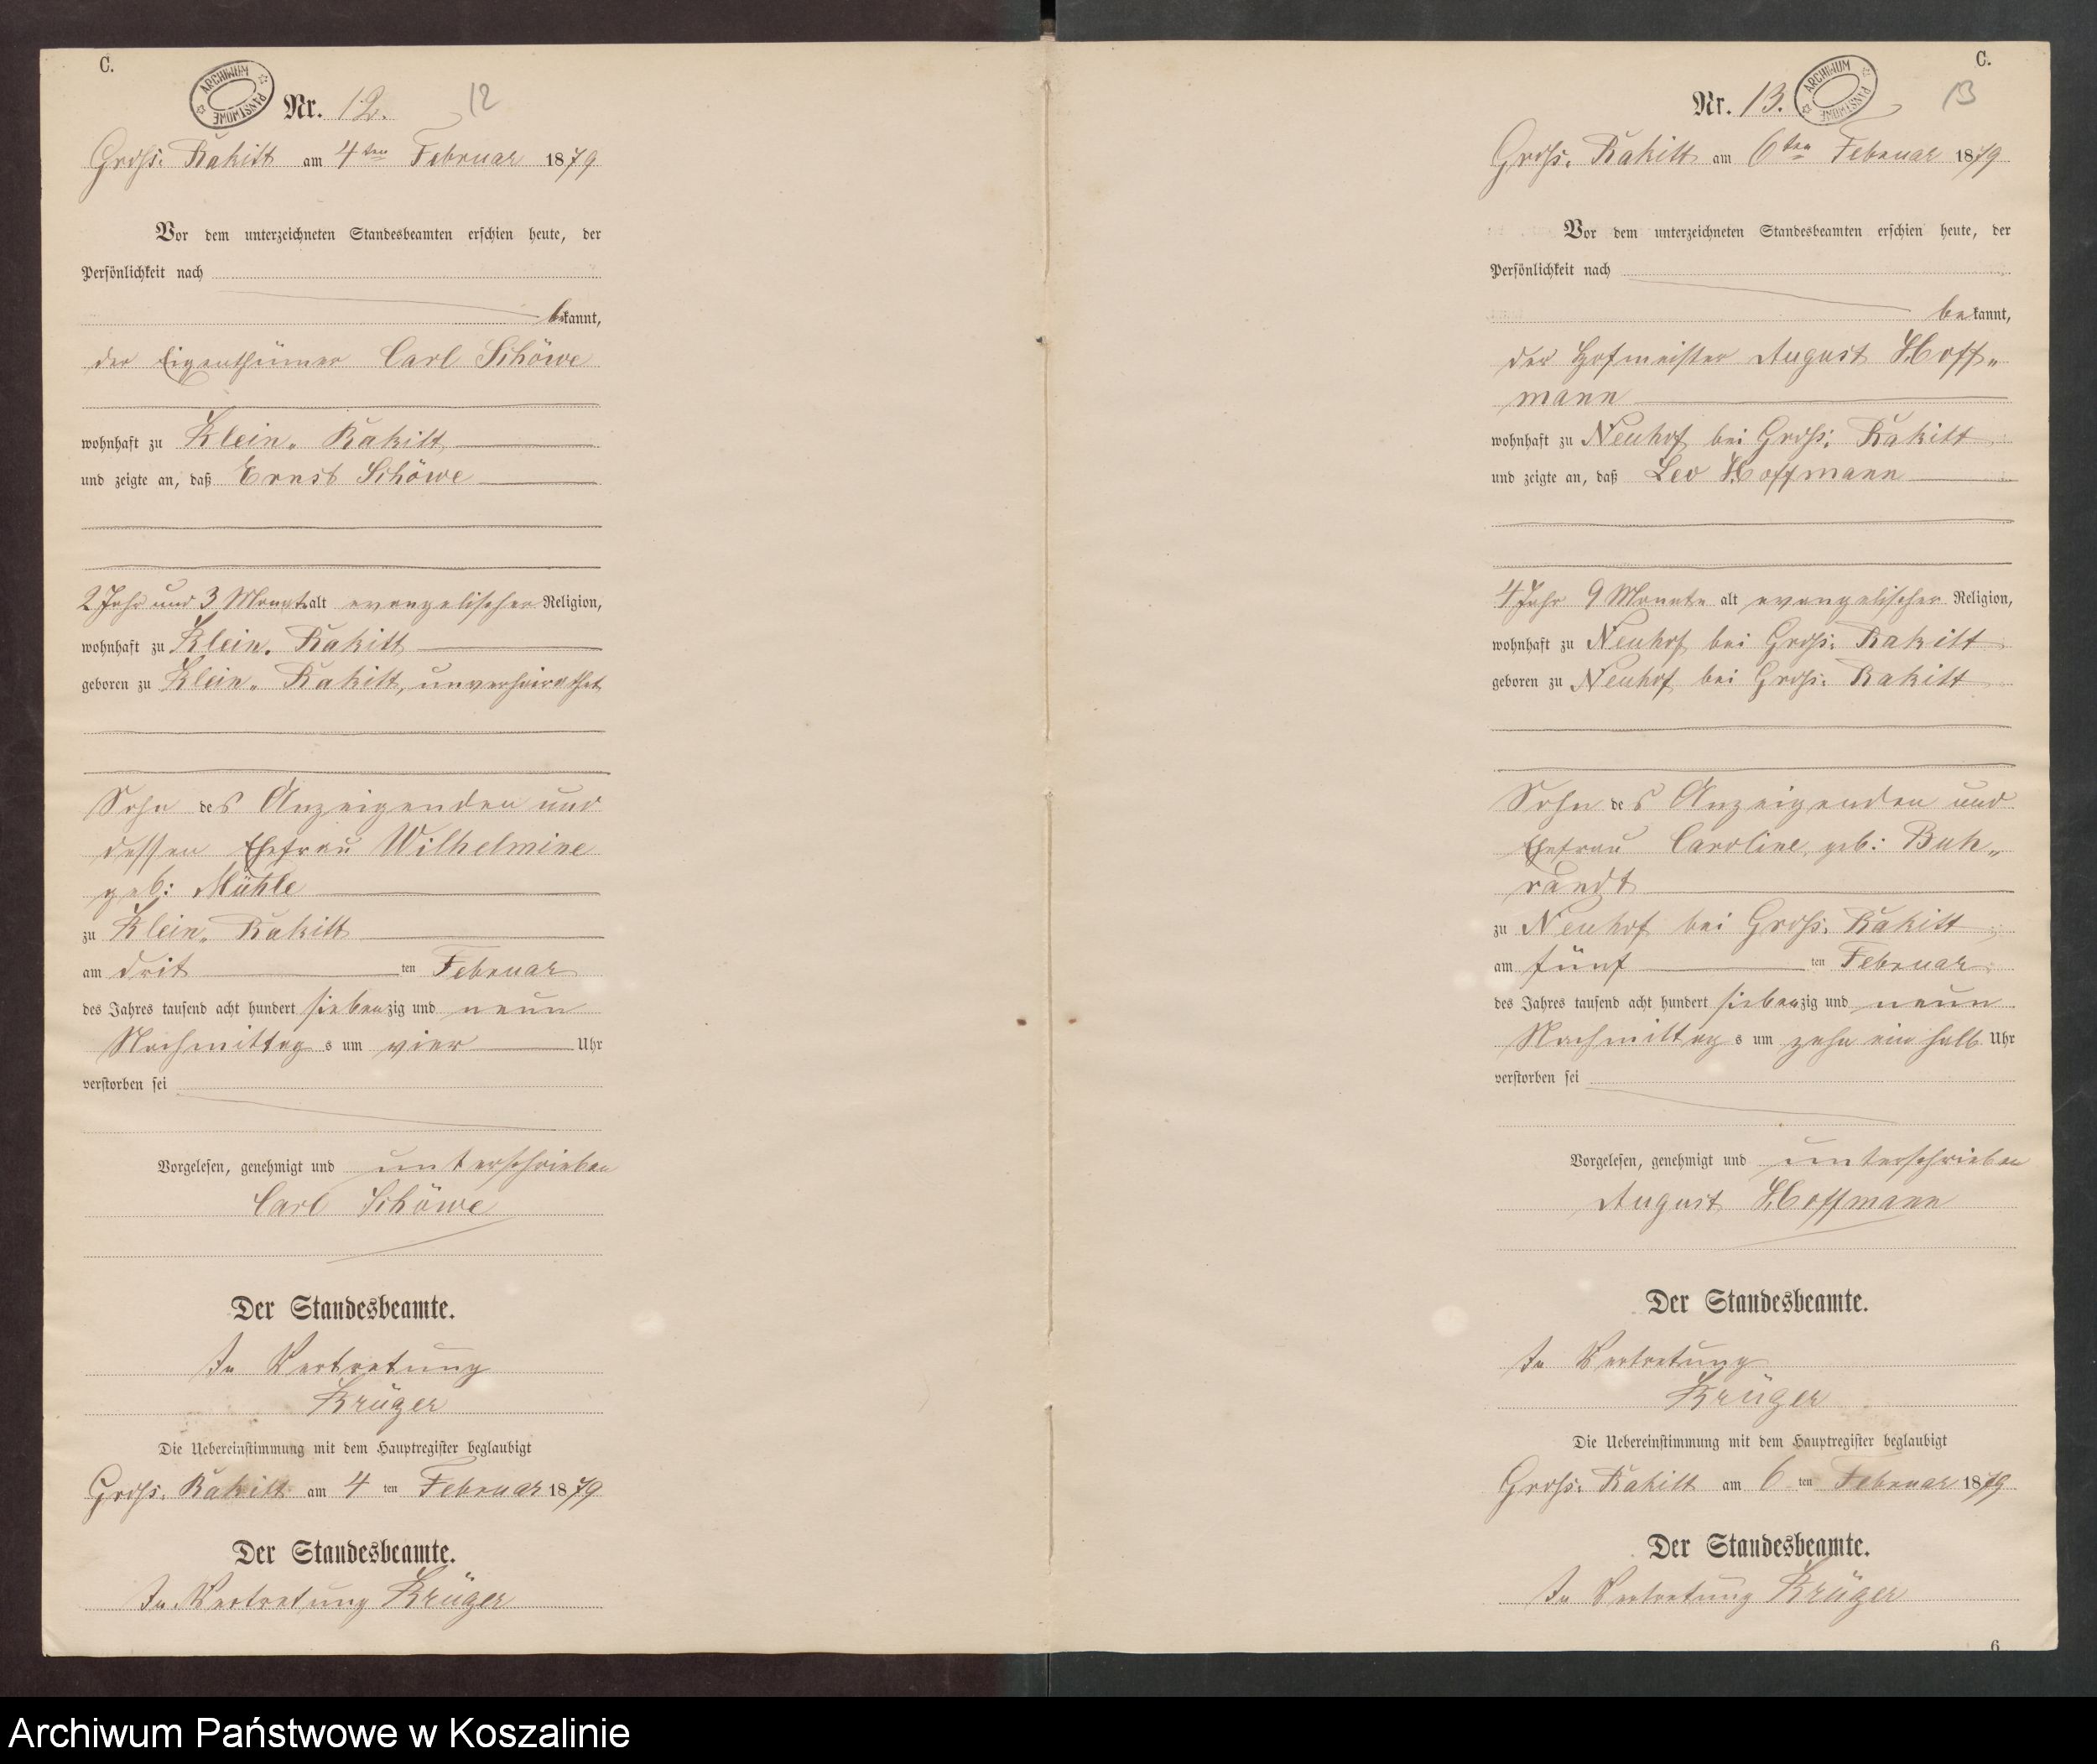 C.
ARCHIWUM PAŃSTWOWE
Nr. 12.
12
Groß. Rakitt am 4ten Februar 1879
Vor dem unterzeichneten Standesbeamten erschien heute, der
Persönlichkeit nach
bekannt,
der Eigenthümer Carl Schöwe
wohnhaft zu Klein. Rakitt
und zeigte an, daß Ernst Schöwe
2 Jahr und 3 Monate alt evangelischer Religion,
wohnhaft zu Klein. Rakitt
geboren zu Klein. Rakitt, unverheirathet
Sohn des Anzeigenden und
dessen Ehefrau Wilhelmine
geb: Mühle
zu Klein. Rakitt
am drit ten Februar
des Jahres tausend acht hundert siebenzig und neun
Nachmittag s um vier Uhr
verstorben sei
Vorgelesen, genehmigt und unterschrieben
Carl Schöwe
Der Standesbeamte.
In Vertretung
Krüger
Die Uebereinstimmung mit dem Hauptregister beglaubigt
Groß. Rakitt am 4 ten Februar 1879
Der Standesbeamte.
In Vertretung Krüger
C.
Nr. 13.
ARCHIWUM PAŃSTWOWE
13
Groß. Rakitt am 6ten Februar 1879
Vor dem unterzeichneten Standesbeamten erschien heute, der
Persönlichkeit nach
bekannt,
der Hofmeister August Hoff„
mann
wohnhaft zu Neuhof bei Groß: Rakitt
und zeigte an, daß Leo Hoffmann
4 Jahr 9 Monate alt evangelischer Religion,
wohnhaft zu Neuhof bei Groß: Rakitt
geboren zu Neuhof bei Groß: Rakitt
Sohn des Anzeigenden und
Ehefrau Caroline, geb:
zu Neuhof bei Groß. Rakitt
am fünf ten Februar
des Jahres tausend acht hundert siebenzig und neun
Nachmittag s um zehn ein halb Uhr
verstorben sei
Vorgelesen, genehmigt und unterschrieben
August Hoffmann
Der Standesbeamte.
In Vertretung
Krüger
Die Uebereinstimmung mit dem Hauptregister beglaubigt
Groß. Rakitt am 6 ten Februar 1879
Der Standesbeamte.
In Vertretung Krüger
6
Archiwum Państwowe w Koszalinie